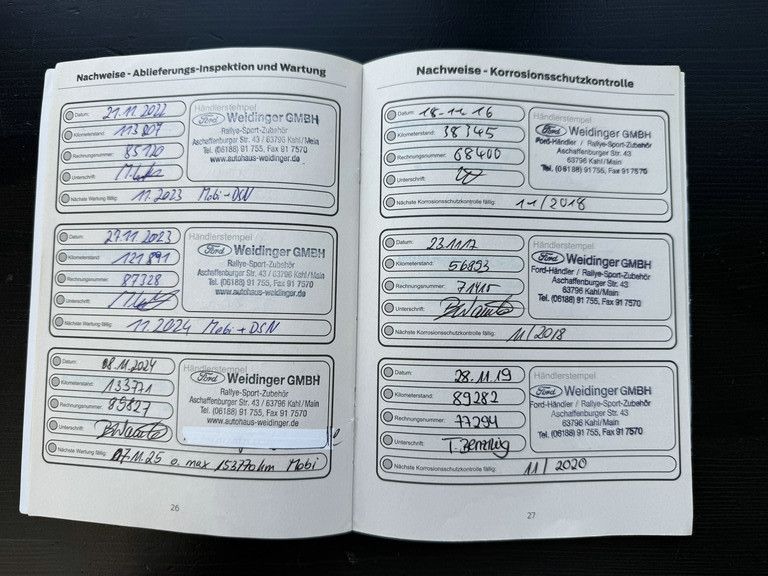 Nachweise - Ablieferungs-Inspektion und Wartung
Datum: 21.11.2022
Kilometerstand: 113807
Rechnungsnummer: 85120
Unterschrift:
Nächste Wartung fällig: 11.2023 Mobi + DSN
Händlerstempel
Ford Weidinger GMBH
Rallye-Sport-Zubehör
Aschaffenburger Str. 43 / 63796 Kahl/Main
Tel. (06188) 91 755, Fax 91 7570
www.autohaus-weidinger.de
Datum: 27.11.2023
Kilometerstand: 121891
Rechnungsnummer: 87328
Unterschrift:
Nächste Wartung fällig: 11.2024 Mobi + DSN
Händlerstempel
Ford Weidinger GMBH
Rallye-Sport-Zubehör
Aschaffenburger Str. 43 / 63796 Kahl/Main
Tel. (06188) 91 755, Fax 91 7570
www.autohaus-weidinger.de
Datum: 08.11.2024
Kilometerstand: 133771
Rechnungsnummer: 89827
Unterschrift:
Nächste Wartung fällig: 07.11.25 o. max 153770km Mobi
Händlerstempel
Ford Weidinger GMBH
Rallye-Sport-Zubehör
Aschaffenburger Str. 43 / 63796 Kahl/Main
Tel. (06188) 91 755, Fax 91 7570
www.autohaus-weidinger.de
26
Nachweise - Korrosionsschutzkontrolle
Datum: 18-11-16
Kilometerstand: 38345
Rechnungsnummer: 68400
Unterschrift:
Nächste Korrosionsschutzkontrolle fällig: 11/2018
Händlerstempel
Ford Weidinger GMBH
Ford-Händler / Rallye-Sport-Zubehör
Aschaffenburger Str. 43
63796 Kahl/Main
Tel. (06188) 91 755, Fax 91 7570
Datum: 231117
Kilometerstand: 56893
Rechnungsnummer:
Unterschrift:
Nächste Korrosionsschutzkontrolle fällig: 11/2018
Händlerstempel
Ford Weidinger GMBH
Ford-Händler / Rallye-Sport-Zubehör
Aschaffenburger Str. 43
63796 Kahl/Main
Tel. (06188) 91 755, Fax 91 7570
Datum: 28.11.19
Kilometerstand: 89282
Rechnungsnummer: 77294
Unterschrift:
Nächste Korrosionsschutzkontrolle fällig: 11/2020
Händlerstempel
Ford Weidinger GMBH
Ford-Händler / Rallye-Sport-Zubehör
Aschaffenburger Str. 43
63796 Kahl/Main
Tel. (06188) 91 755, Fax 91 7570
27